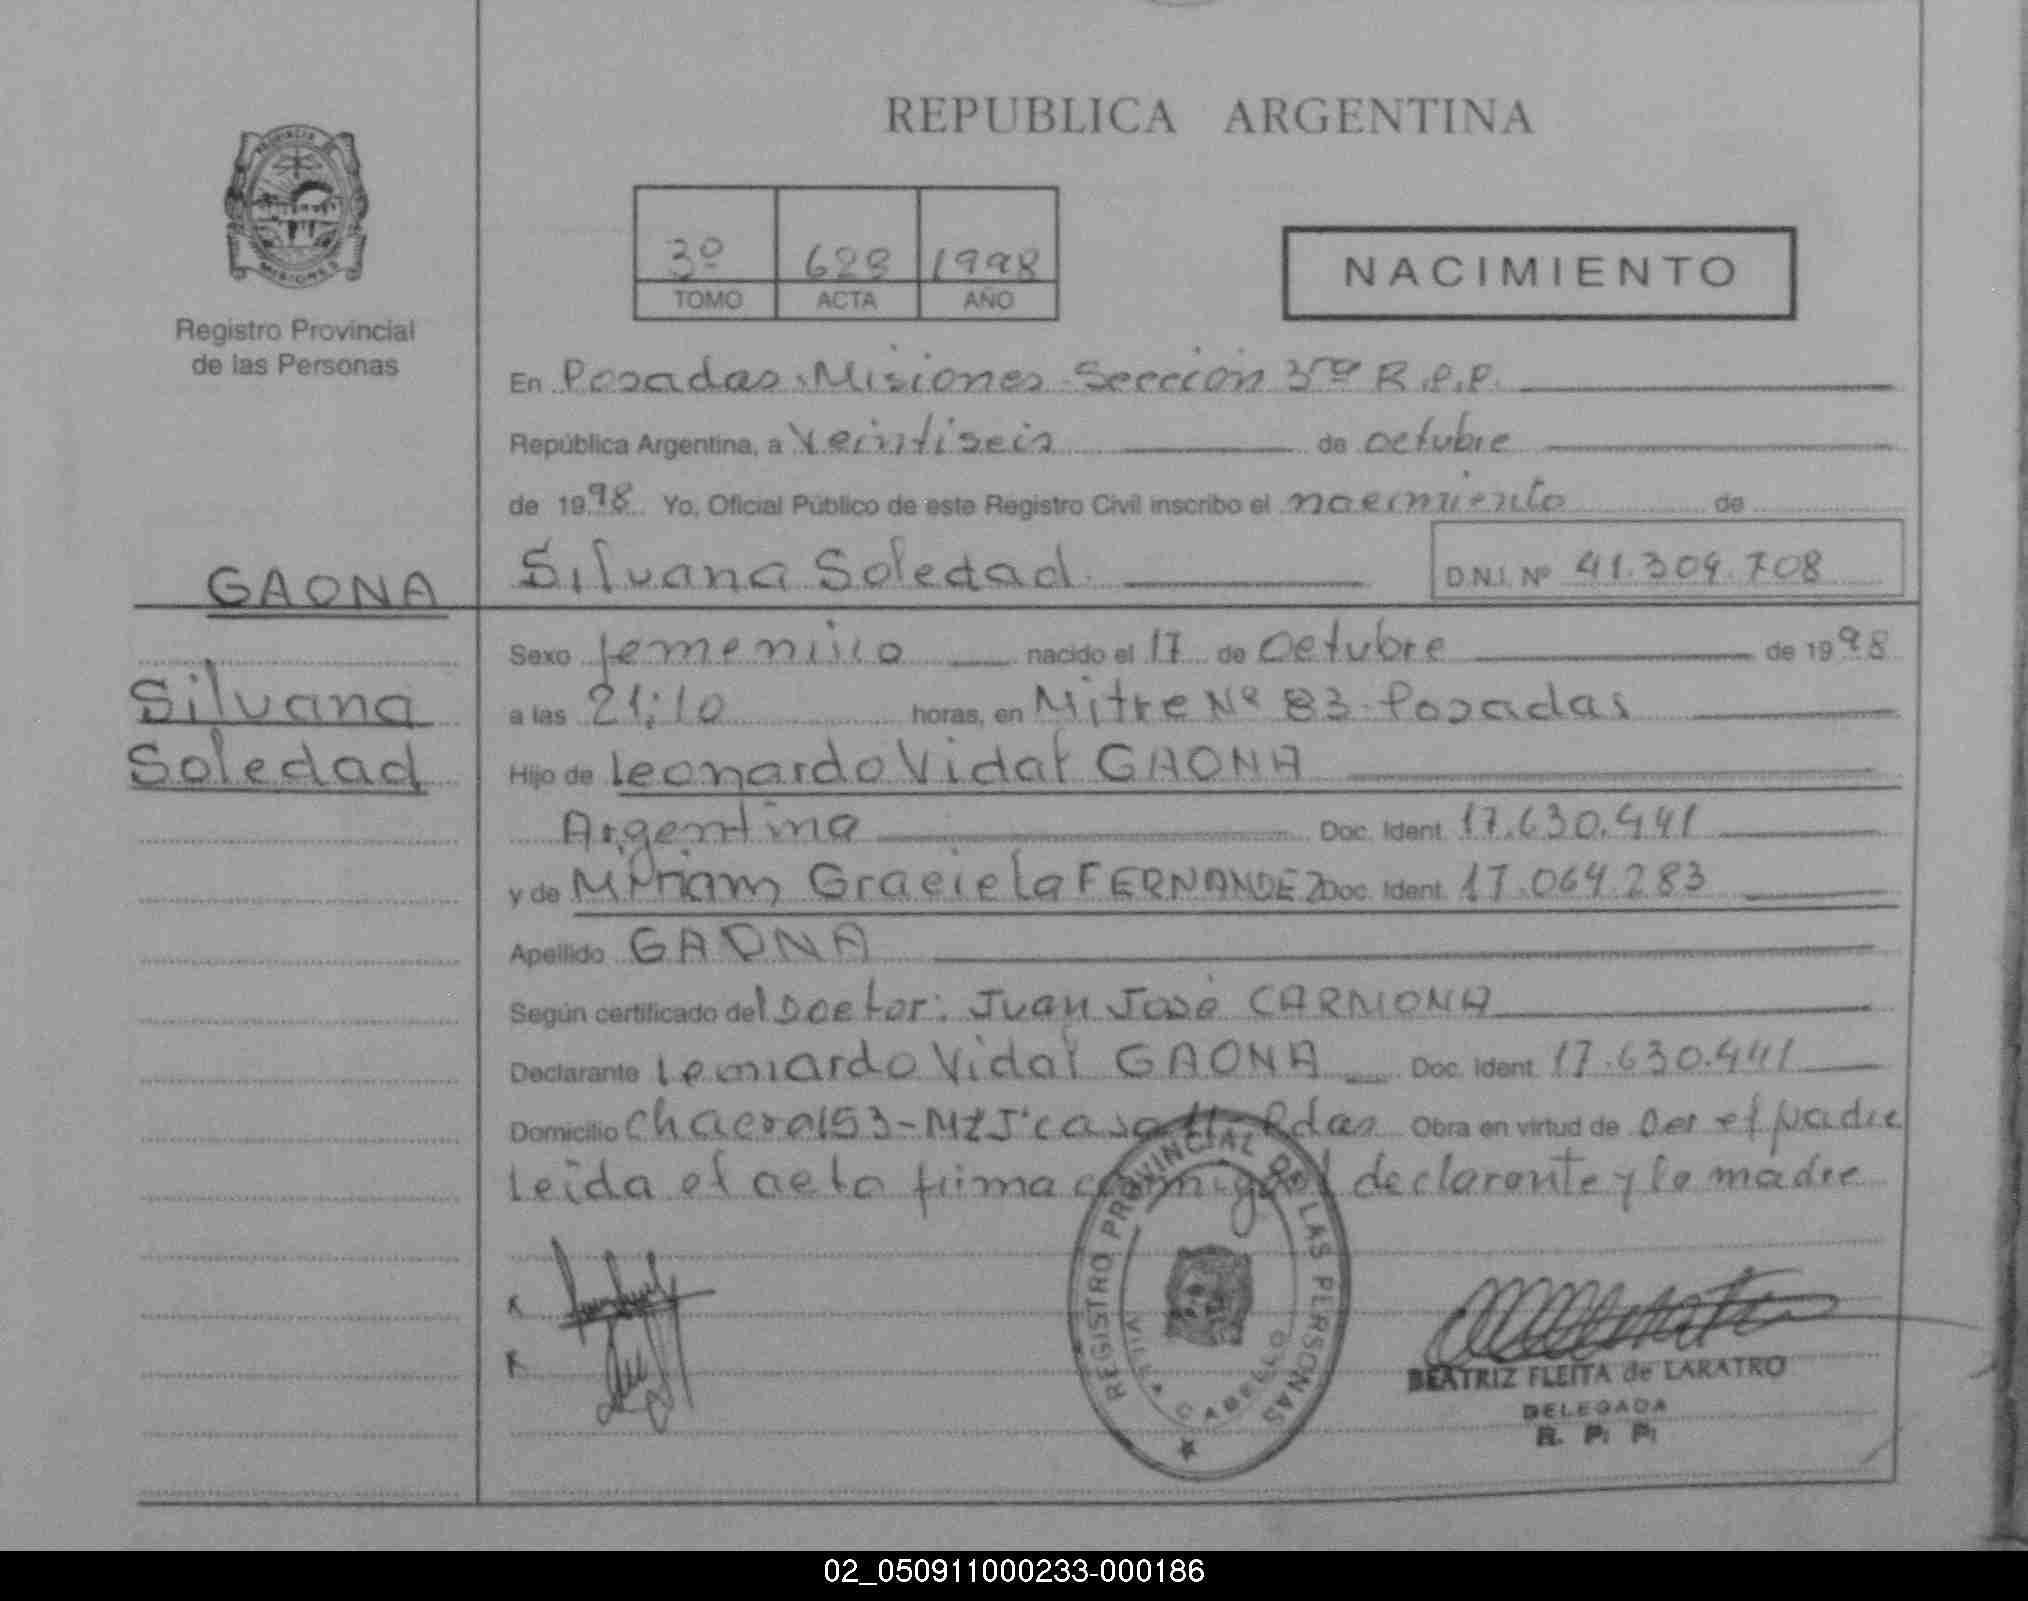 REPUBLICA ARGENTINA
PROVINCIA
MISIONES
Registro Provincial
de las Personas
3º 628 1998
TOMO ACTA AÑO
NACIMIENTO
En Posadas Misiones Sección 3ra R.P.P.
República Argentina, a Veintiseis de octubre
de 1998 Yo, Oficial Público de este Registro Civil inscribo el nacimiento de
Silvana Soledad D.N.I. Nº 41.304.708
GAONA
Silvana
Soledad
Sexo femenino nacido el 17 de Octubre de 1998
a las 21:10 horas, en Mitre Nº 83 Posadas
Hijo de Leonardo Vidal GAONA
Argentina Doc. Ident. 17.630.441
y de Miriam Graciela FERNANDEZ Doc. Ident. 17.064.283
Apellido GAONA
Según certificado del Doctor: Juan José CARMONA
Declarante Leonardo Vidal GAONA Doc. Ident. 17.630.441
Domicilio Chacra 153 - casa Pdas Obra en virtud de ser el padre
Leida el acta firma conmigo el declarante y la madre
REGISTRO PROVINCIAL DE LAS PERSONAS
CABELLO
BEATRIZ FLEITA de LARATRO
DELEGADA
R. P. P.
02_050911000233-000186